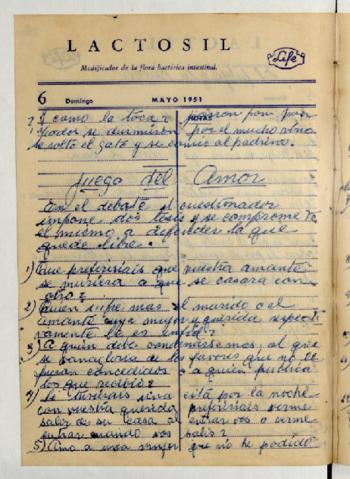 LACTOSIL
Life
Modificador de la flora bactérica intestinal.
6 Domingo MAYO 1951
NOTAS
? como la toca?
se durmieron por el mucho vino
se soltó el gato y se comió al padrino.
Juego del Amor
En el debate el cuestionador
impone dos tesis y se compromete
el mismo a defender la que
quede libre.
1) Que preferiríais que vuestra amante
se muriera o que se casara con
otro?
2) Quien sufre mas el marido o el
amante cuya mujer o querida
les
3) A quien debe condenarse mas, al que
se vanagloria de los favores que no le
fueran concedidos o a quien publica
los que recibió?
4) Si tuvierais una cita por la noche
con vuestra querida preferiríais verme
salir de su casa al entrar vos o verme
entrar cuando vos salís?
5) Amo a una mujer que no he podido